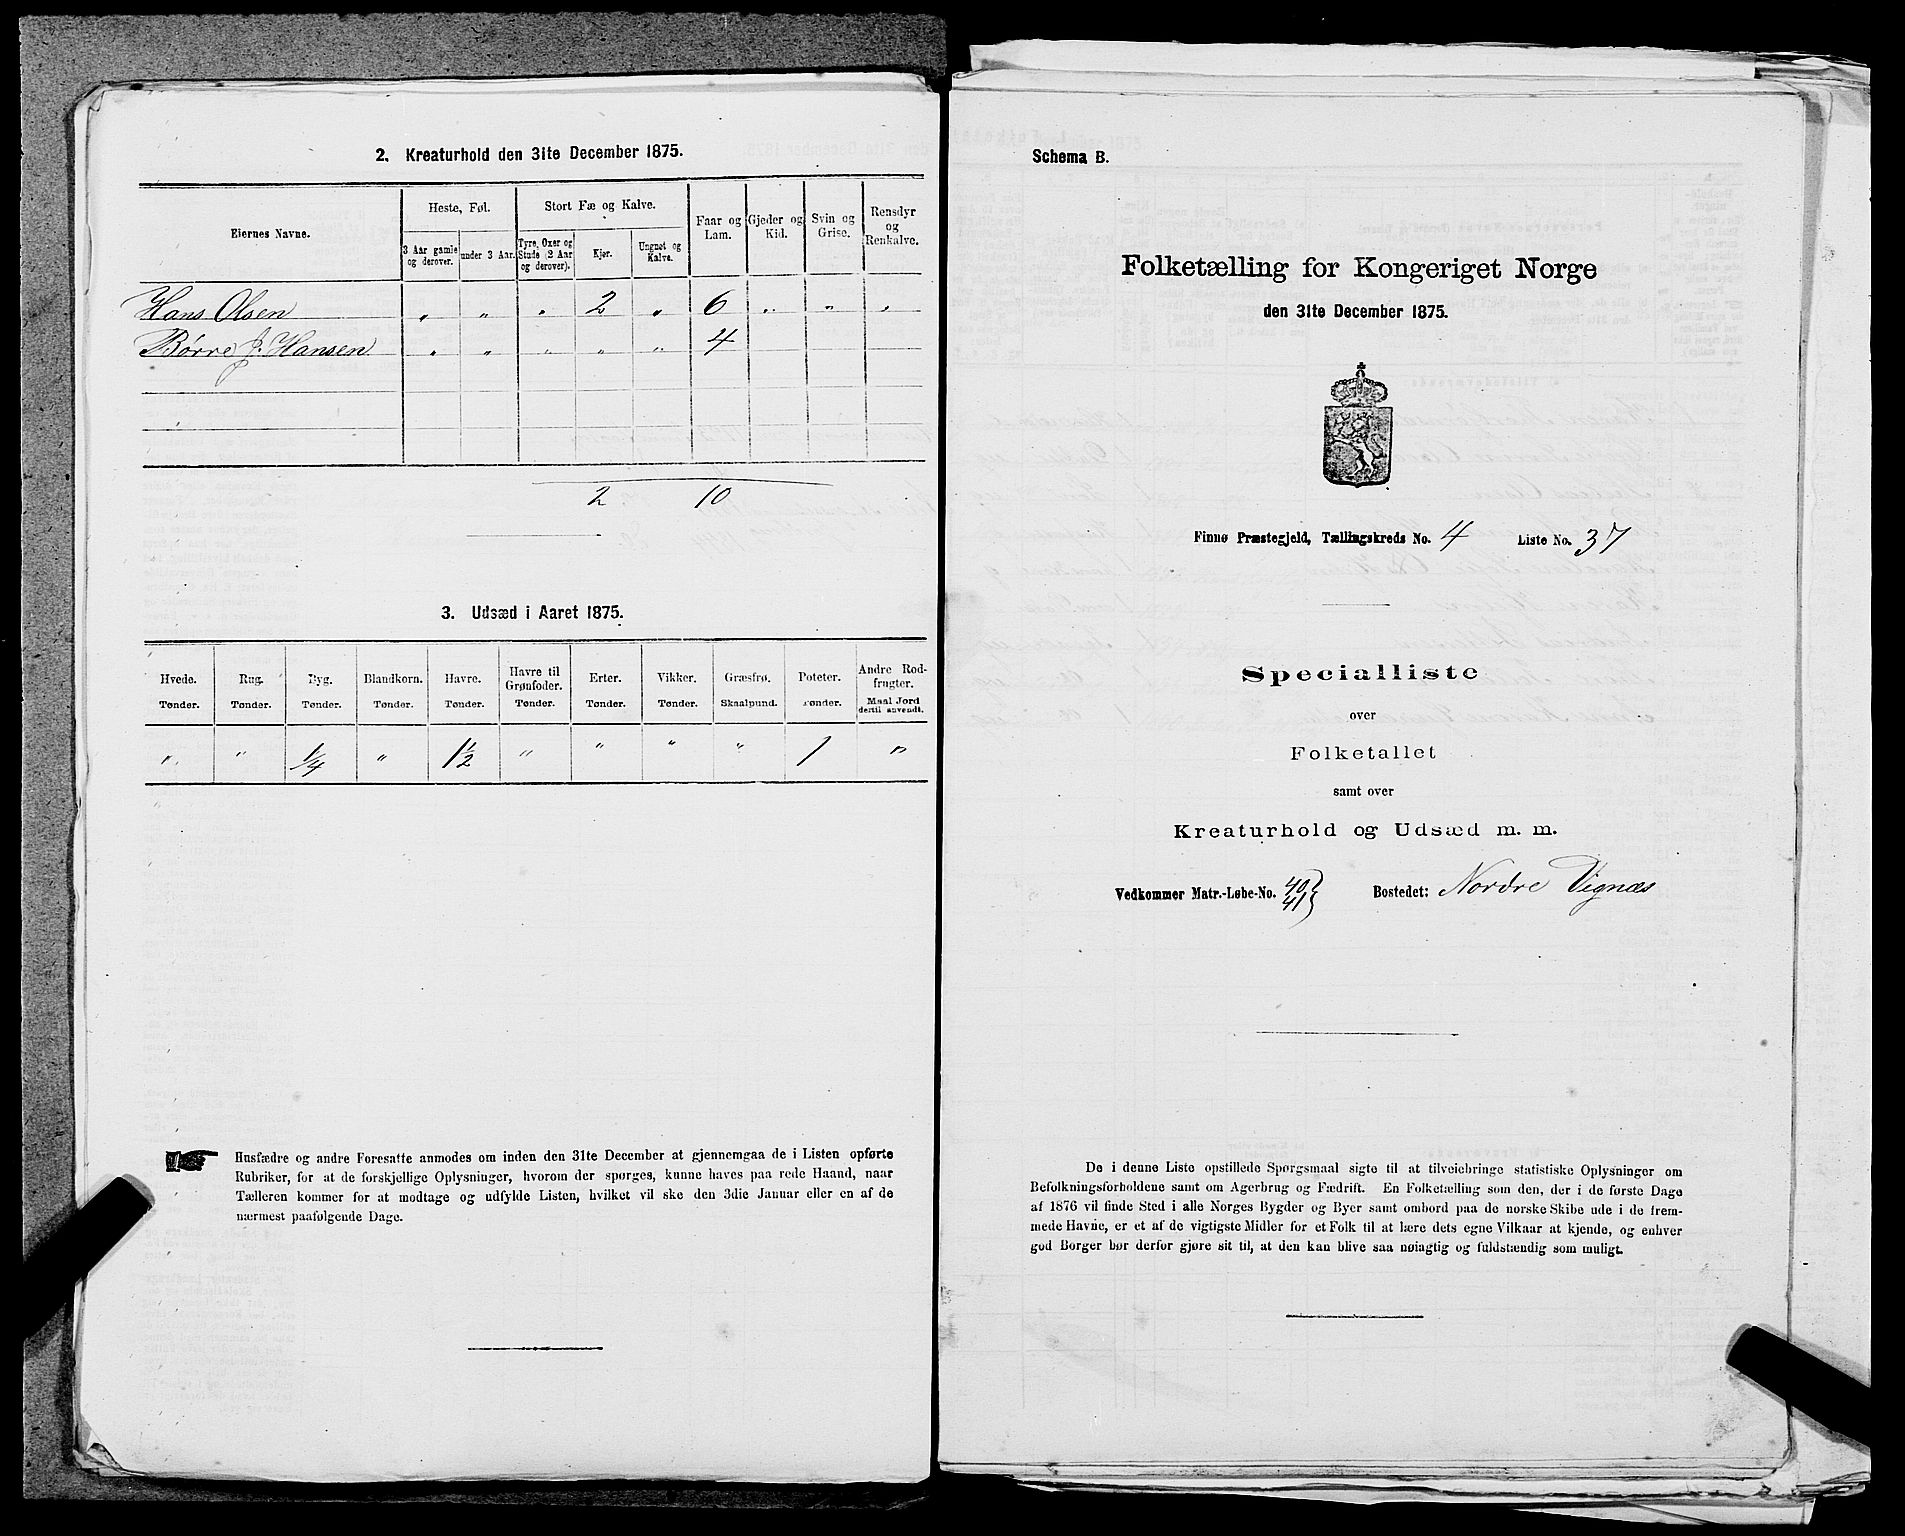 2. Kreaturhold den 31te December 1875.
Eiernes Navne.
Heste, Føl.
Stort Fæ og Kalve.
Faar og Lam.
Gjeder og Kid.
Svin og Grise.
Rensdyr og Renkalve.
3 Aar gamle og derover.
under 3 Aar.
Tyre, Oxer og Stude (2 Aar og derover).
Kjør.
Ungnøt og Kalve.
Hans Olsen " " " 2 " 6 " " "
Børre J. Hansen " " " " " 4
2 10
3. Udsæd i Aaret 1875.
Hvede. Rug. Byg. Blandkorn. Havre. Havre til Grønfoder. Erter. Vikker. Græsfrø. Poteter. Andre Rodfrugter.
Tønder. Tønder. Tønder. Tønder. Tønder. Tønder. Tønder. Tønder. Skaalpund. Tønder. Maal Jord dertil anvendt.
" " 1/4 " 1 1/2 " " " " 1 "
Husfædre og andre Foresatte anmodes om inden den 31te December at gjennemgaa de i Listen opførte
Rubriker, for at de forskjellige Oplysninger, hvorom der spørges, kunne haves paa rede Haand, naar
Tælleren kommer for at modtage og udfylde Listen, hvilket vil ske den 3die Januar eller en af de
nærmest paafølgende Dage.
Schema B.
Folketælling for Kongeriget Norge
den 31te December 1875.
Finnø Præstegjeld, Tællingskreds No. 4 Liste No. 37
Specialliste
over
Folketallet
samt over
Kreaturhold og Udsæd m. m.
Vedkommer Matr.-Løbe-No. 40 } 41 } Bostedet: Nordre Vignæs
De i denne Liste opstillede Spørgsmaal sigte til at tilveiebringe statistiske Oplysninger om
Befolkningsforholdene samt om Agerbrug og Fædrift. En Folketælling som den, der i de første Dage
af 1876 vil finde Sted i alle Norges Bygder og Byer samt ombord paa de norske Skibe ude i de frem-
mede Havne, er et af de vigtigste Midler for et Folk til at lære dets egne Vilkaar at kjende, og enhver
god Borger bør derfor gjøre sit til, at den kan blive saa nøiagtig og fuldstændig som muligt.